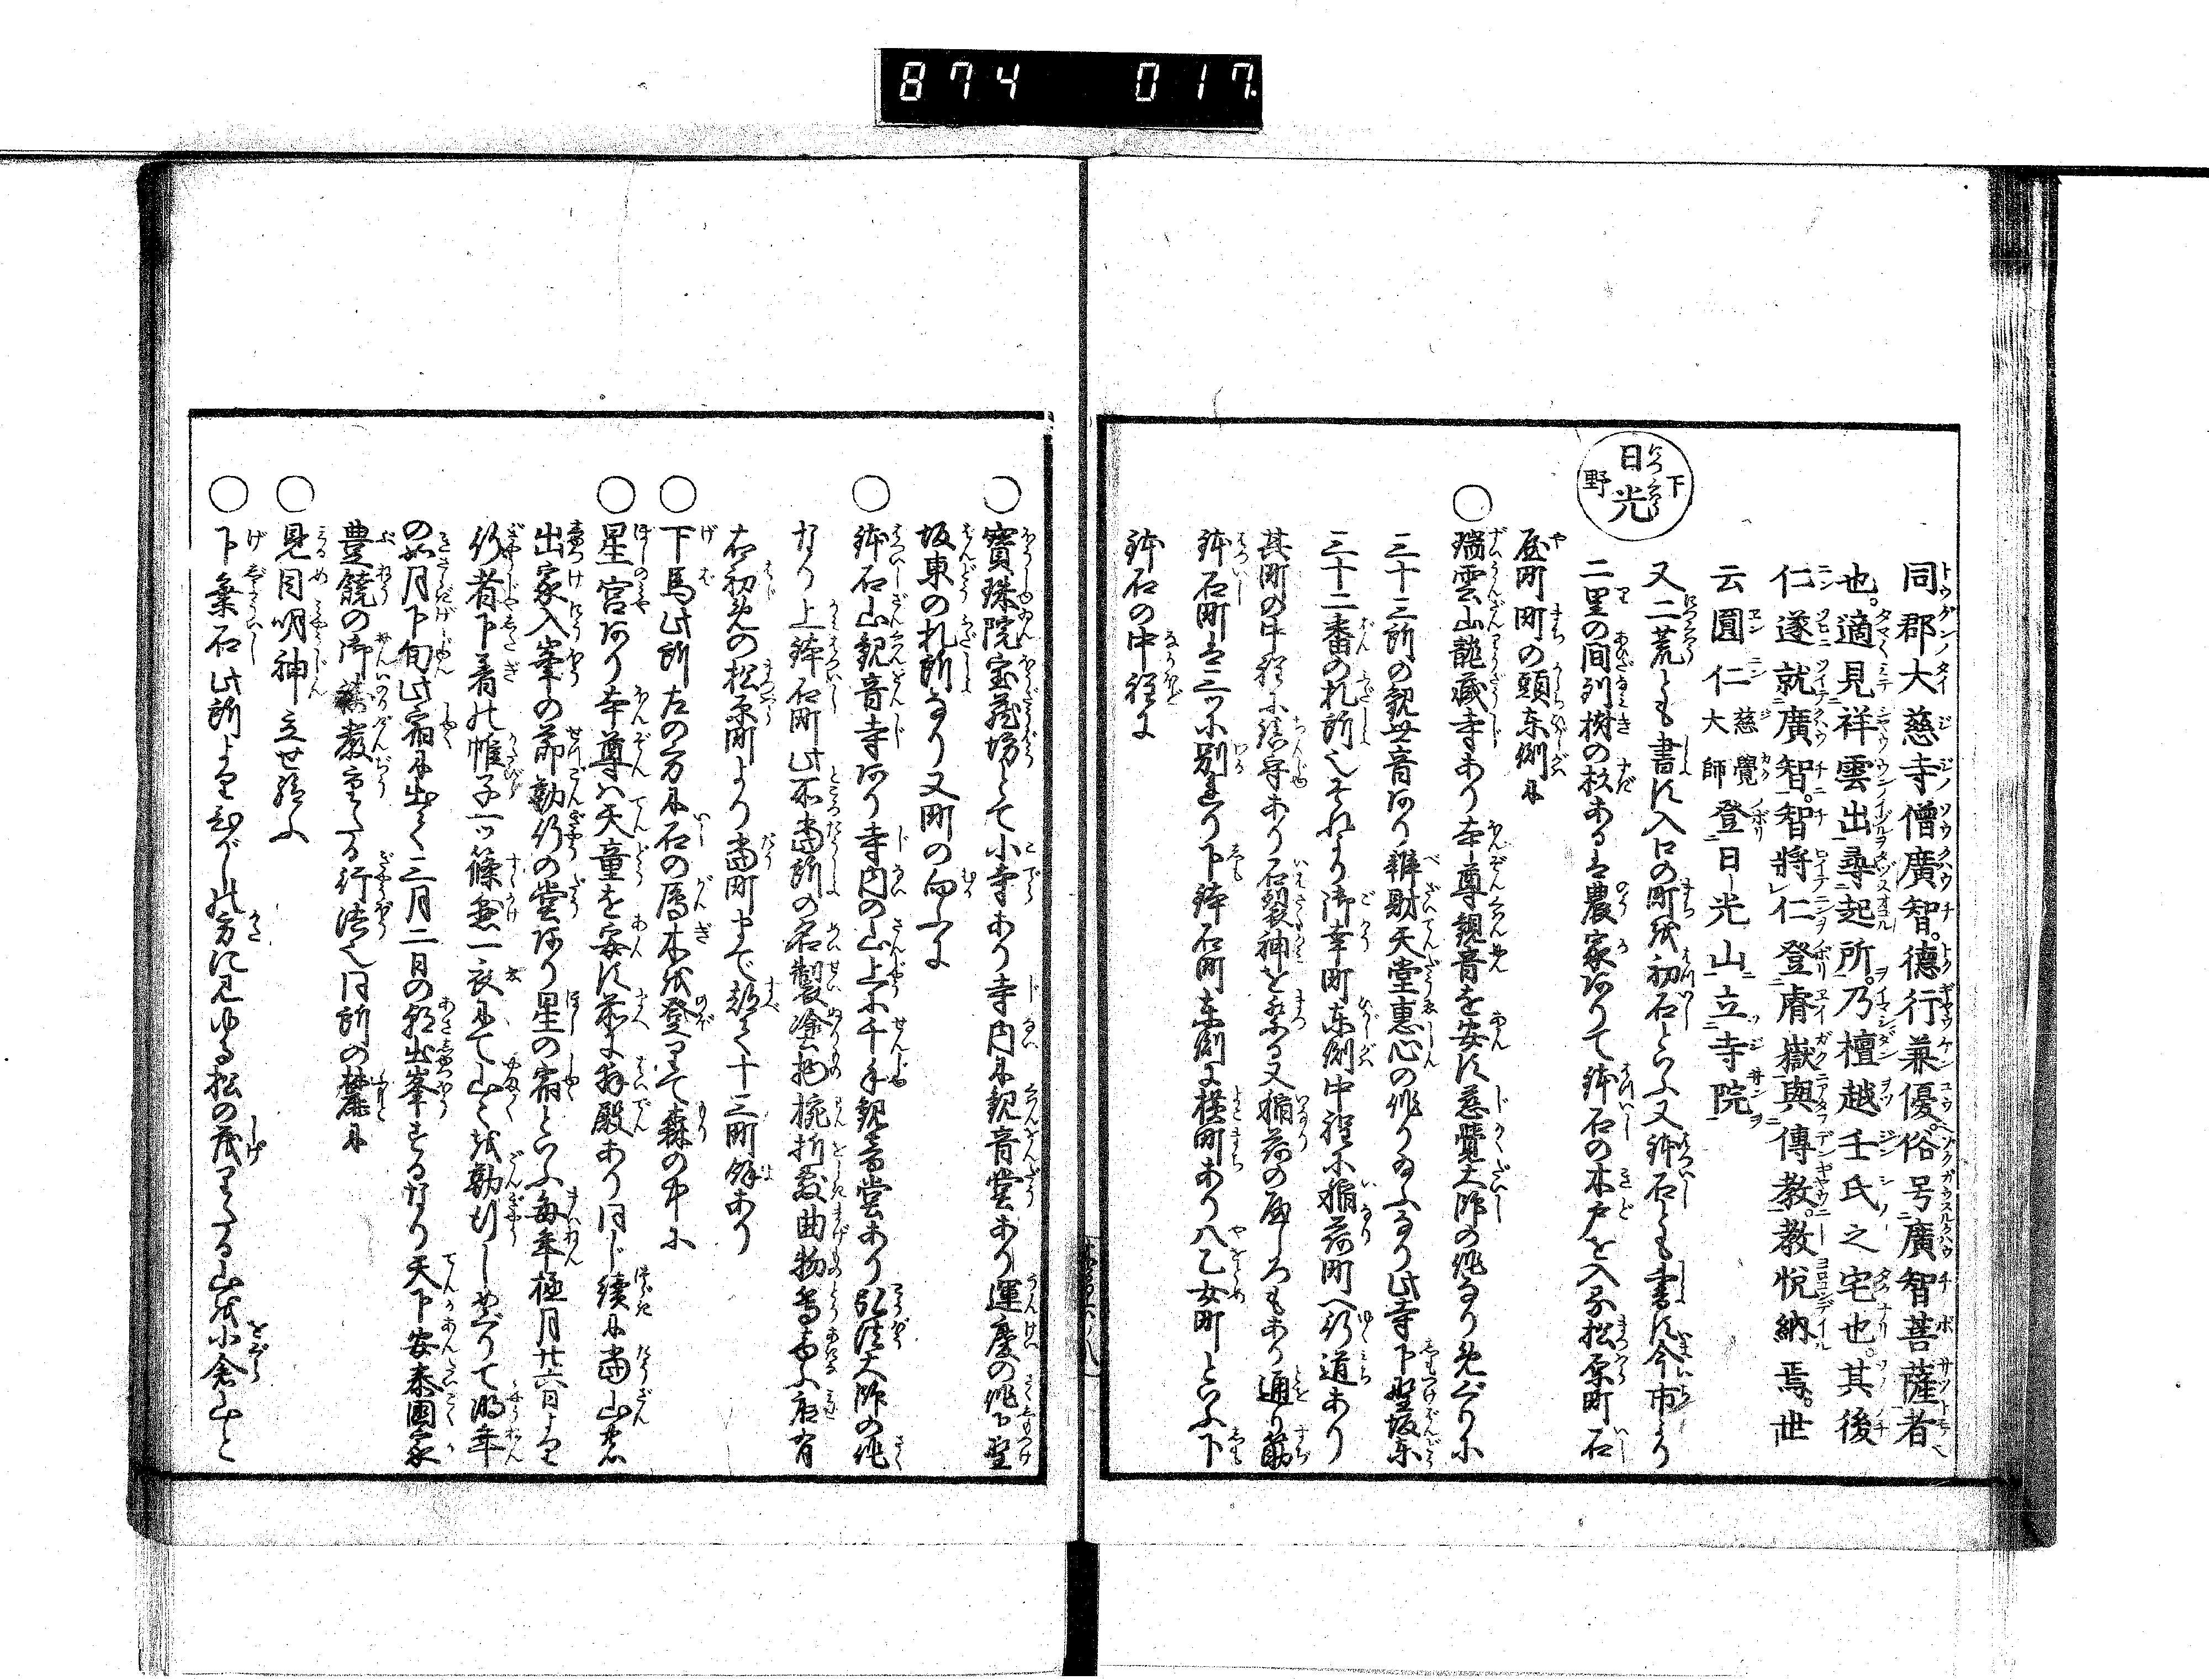 874 017
同郡大慈寺僧廣智。德行兼優。俗号廣智菩薩者
也。適見祥雲出尋起所。乃檀越壬氏之宅也。其後
仁遂就廣智。智將仁登睿嶽與傳教。教悦納焉。世
云圓仁慈覺大師登日光山立寺院
下野日光
又二荒とも書に入口の町を初石といふ又鉢石とも書に今市より
二里の間列樹の杉あるは農家ありて鉢石の木戸を入る松原町石
屋町町の頭東側に
○瑞雲山龍蔵寺あり本尊観音を安に慈覺大師の作なりめぐりに
三十三所の観世音あり辨財天堂惠心の作りゐふなり此寺下野坂東
三十二番の札所也それより御幸町東側中程に稲荷町へ行道あり
其町の中程に鎮守あり石裂神を祭る又稲荷の屋しろもあり通り筋
鉢石町は三ツに別れり下鉢石町東側に横町あり八乙女町といふ下
鉢石の中程に
○寶珠院宝蔵坊とて小寺あり寺内に観音堂あり運慶の作下野
坂東の札所なり又町の向ふに
○鉢石山観音寺あり寺内の山上に千手観音堂あり弘法大師の作
なり上鉢石町此所當所の名製塗物椀折敷曲物等商ふ店有
右初めの松原町より當町まで都て十三町餘あり
○下馬此所左の方に石の雁木を登りて森の中に
○星宮あり本尊ハ天童を安に前に拝殿ありほじ續に當山衆
出家入峯の節勤行の堂あり星の宿といふ毎年極月廿六日より
行者下着の帷子一ツ篠懸一衣にて山々を勤行しめぐりて明年
の如月下旬此宿に出て三月二日の朝出峯するなり天下安泰國家
豊饒の御祷嚴重たる行法也同所の麓に
○見目明神立せ給ふ
○下乗石此所よりひがしの方に見ゆる松の茂りたる山を小倉山と